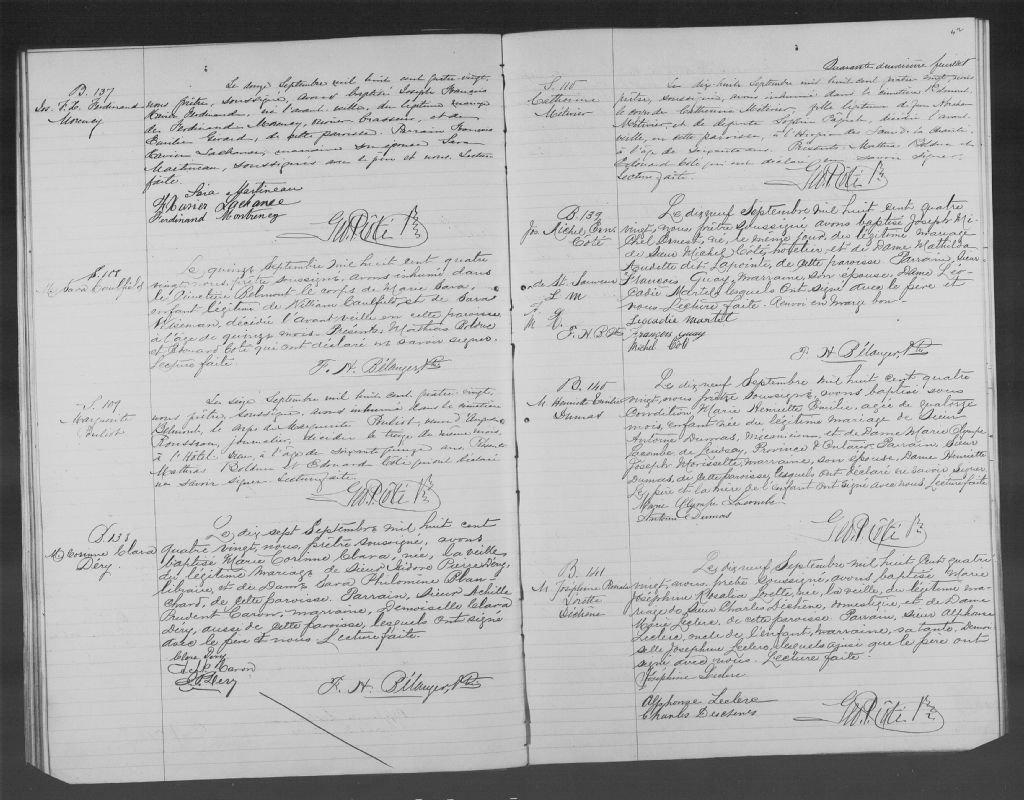 B. 137
Jos. F. X. Ferdinand
Morency
Le douze Septembre mil huit cent quatre-vingt,
nous prêtre, soussigné, avons baptisé Joseph François
Xavier Ferdinand, né l'avant-veille, du légitime mariage
de Ferdinand Morency, brasseur, et de
Emilie Girard, de cette paroisse. Parrain François
Xavier Lachance, marraine son épouse Sara
Martineau, soussignés avec le père et nous. Lecture
faite.
Sara Martineau
F. Xavier Lachance
Ferdinand Montrency
Geo. P. Côté Ptre
S. 108
M. Sara Caulfield
Le quinze Septembre mil huit cent quatre
vingt nous prêtre soussigné, avons inhumé dans
le Cimetière Belmont le corps de Marie Sara,
enfant légitime de William Caulfield et de Sara
Wiseman, décédée l'avant veille en cette paroisse
à l'âge de quinze mois. Présents, Mathias Bolduc
et Edouard Coté qui ont déclaré ne savoir signer.
Lecture faite.
F. H. Bélanger, Ptre
S. 109
Marguerite
Pouliot
Le seize Septembre mil huit cent quatre-vingt,
nous prêtre, soussigné, avons inhumé dans le cimetière
Belmont, le corps de Marguerite Pouliot, veuve
Rousseau, journalier, décédée le treize du même mois,
à l'Hôtel-Dieu, à l'âge de ans. Présents
Mathias Bolduc et Edouard Côté qui ont déclaré
ne savoir signer. Lecture faite.
Geo. P. Côté Ptre
B. 138
M. Corinne Clara
Déry.
Le dix sept Septembre mil huit cent
quatre vingt, nous, prêtre soussigné, avons
baptisé Marie Corinne Clara, née, la veille
du légitime mariage de Sieur Isidore Pierre Déry,
libraire, et de Dame Sara Philomène Blan-
chard, de cette paroisse. Parrain, Sieur Achille
Prudent Caron, marraine, Demoiselle Clara
Déry, aussi de cette paroisse, lesquels ont signé
avec le père et nous. Lecture faite.
Clara Déry
A. P. Caron
I. P. Déry
F. H. Bélanger, Ptre
42
Quarante deuxième feuillet
S. 110
Catherine
Métivier
Le dix-huit Septembre mil huit cent quatre vingt, nous
prêtre, soussigné, avons inhumé dans le cimetière Belmont,
le corps de Catherine Métivier, fille légitime de Jean
Métivier, et de défunte Sophie, décédée l'avant
veille, en cette paroisse, à l'Hospice des Sœurs de la Charité,
à l'âge de ans. Présents Mathias Bolduc et
Edouard Côté qui ont déclaré ne savoir signer.
Lecture faite.
Geo. P. Côté Ptre
B. 139
Jos. Michel Ern.
Coté
de St. Sauveur
L. M
F. G.
M. C.
F. H. B. Ptre
Le dixneuf Septembre mil huit cent quatre
vingt, nous prêtre soussigné avons baptisé Joseph Mi-
chel Ernest, né, le même jour, du légitime mariage
de Sieur Michel Côté, hôtelier, et de Dame Mathilda
Audette dit Lapointe, de cette paroisse. Parrain, Sieur
François Guay, marraine, son épouse, Dame Léo-
cadie Martel, lesquels ont signé avec le père et
nous. Lecture faite. Renvoi en marge bon.
Leocadie Martel
François Guay
Michel Coté
F. H. Bélanger, Ptre
B. 140
M. Henriette Emilie
Dumas
Le dixneuf Septembre mil huit cent quatre
vingt, nous prêtre soussigné, avons baptisé sous
condition, Marie Henriette Emilie, agée de quatorze
mois, enfant née du légitime mariage de Sieur
Antoine Dumas, Mécanicien, et de Dame Marie Olympe
Lacombe de Lindsay, Province d'Ontario. Parrain, Sieur
Joseph Morissette, marraine, son épouse, Dame Henriette
Dumas, de cette paroisse, lesquels ont déclaré ne savoir signer.
Le père et la mère de l'enfant ont signé avec nous. Lecture faite
Marie Olympe Lacombe
Antoine Dumas
Geo. P. Côté Ptre
B. 141
M. Joséphine Rosalie
Lorette
Dechêne
Le dixneuf Septembre mil huit cent quatre
vingt, nous, prêtre soussigné, avons baptisé Marie
Joséphine Rosalie Lorette, née, la veille, du légitime ma-
riage de Sieur Charles Dechêne, domestique, et de Dame
Marie Leclerc, de cette paroisse. Parrain, Sieur Alphonse
Leclerc, oncle de l'enfant, marraine, sa tante, Demoi-
selle Joséphine Leclerc, lesquels ainsi que le père ont
signé avec nous. Lecture faite.
Joséphine Leclerc
Alphonse Leclerc
Charles Deschenes
Geo. P. Côté Ptre